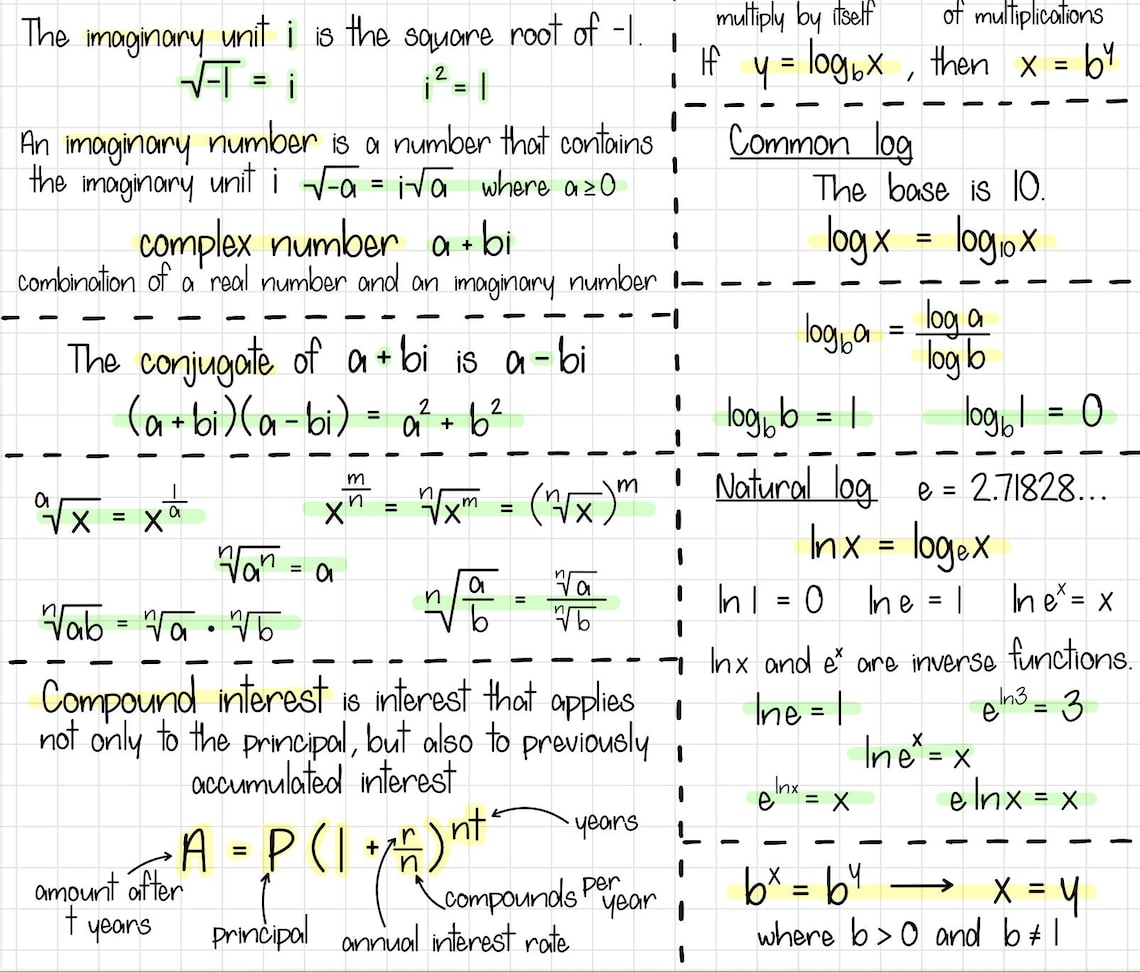 The imaginary unit i is the square root of -1.
√-1 = i i² = 1
An imaginary number is a number that contains
the imaginary unit i √-a = i√a where a ≥ 0
complex number a + bi
combination of a real number and an imaginary number
The conjugate of a + bi is a - bi
(a + bi)(a - bi) = a² + b²
ᵃ√x = x^(1/a) x^(m/n) = ⁿ√xᵐ = (ⁿ√x)ᵐ
ⁿ√aⁿ = a
ⁿ√ab = ⁿ√a · ⁿ√b ⁿ√(a/b) = ⁿ√a / ⁿ√b
Compound interest is interest that applies
not only to the principal, but also to previously
accumulated interest
A = P(1 + r/n)^(nt) years
amount after
t years
principal
annual interest rate
compounds per year
multiply by itself of multiplications
If y = log_b x , then x = b^y
Common log
The base is 10.
log x = log₁₀ x
log_b a = log a / log b
log_b b = 1 log_b 1 = 0
Natural log e = 2.71828...
ln x = log_e x
ln 1 = 0 ln e = 1 ln e^x = x
ln x and e^x are inverse functions.
ln e = 1 e^(ln 3) = 3
ln e^x = x
e^(ln x) = x e ln x = x
b^x = b^y → x = y
where b > 0 and b ≠ 1